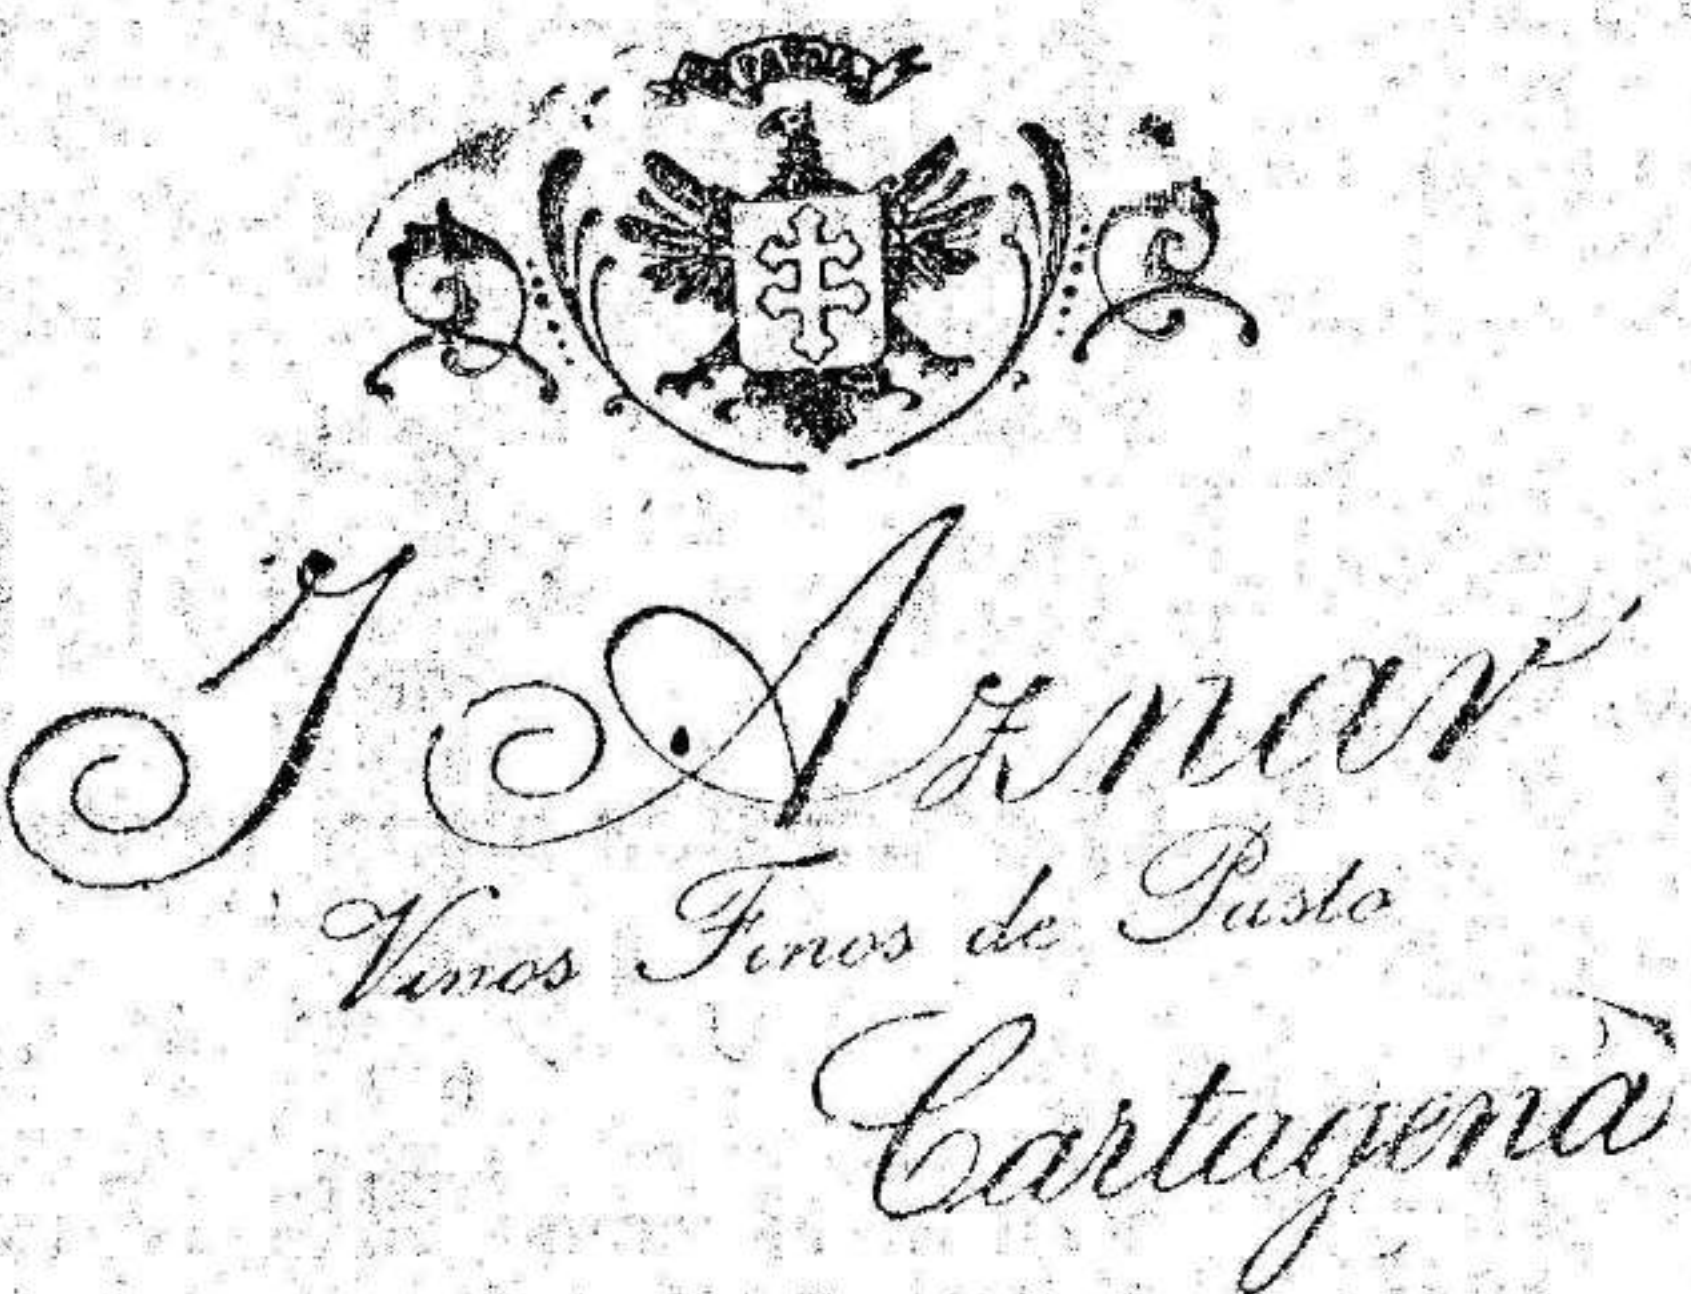 J Aznar
Vinos Finos de Pasto
Cartagena